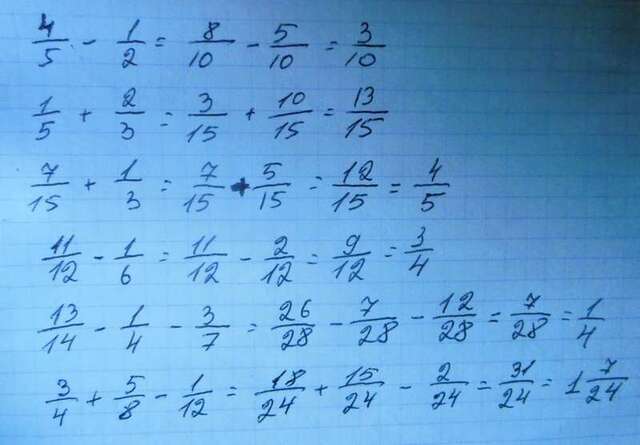 4/5 - 1/2 = 8/10 - 5/10 = 3/10
1/5 + 2/3 = 3/15 + 10/15 = 13/15
7/15 + 1/3 = 7/15 + 5/15 = 12/15 = 4/5
11/12 - 1/6 = 11/12 - 2/12 = 9/12 = 3/4
13/14 - 1/4 - 3/7 = 26/28 - 7/28 - 12/28 = 7/28 = 1/4
3/4 + 5/8 - 1/12 = 18/24 + 15/24 - 2/24 = 31/24 = 1 7/24